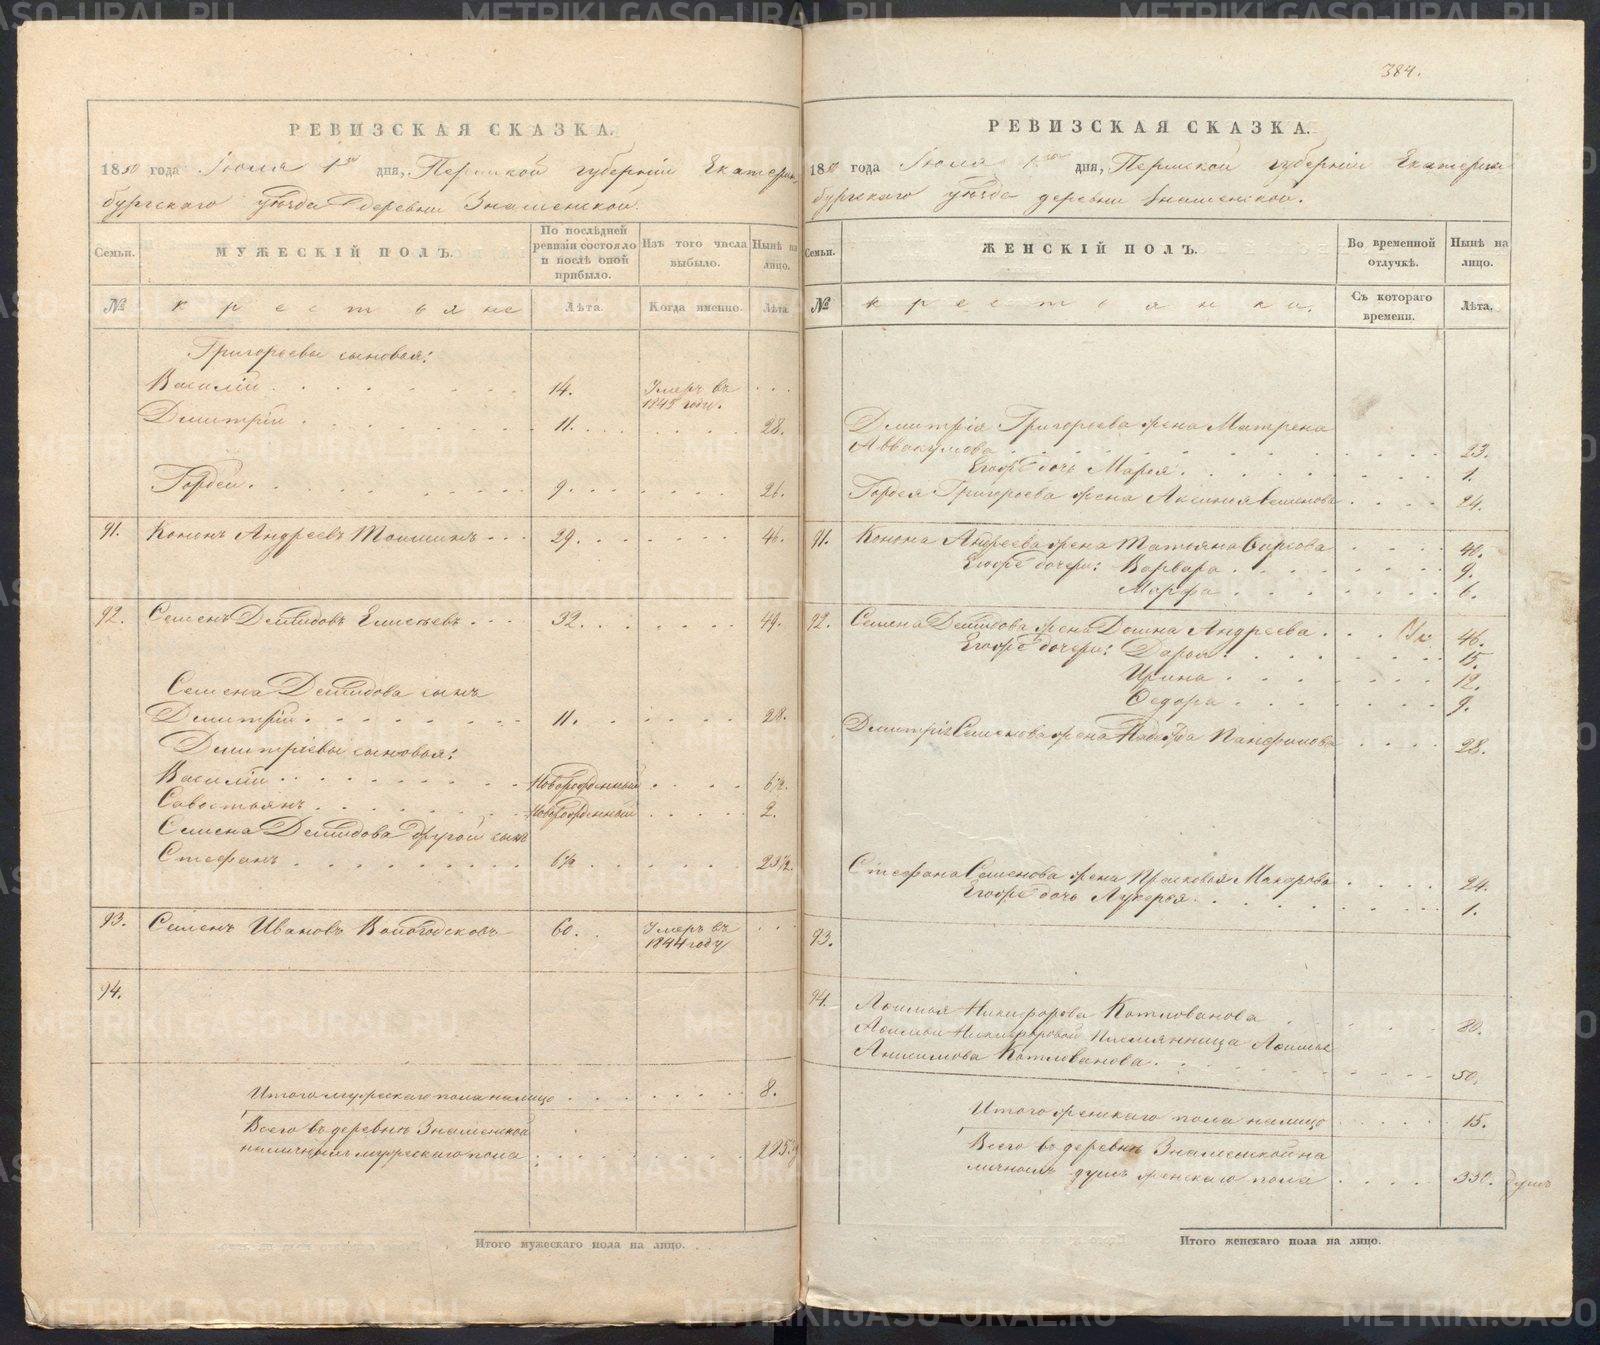 384.
РЕВИЗСКАЯ СКАЗКА.
1850 года Іюля 1го дня, Пермской губерніи Екатерин-
бургскаго уѣзда деревни Знаменской.
Семьи.
МУЖЕСКІЙ ПОЛЪ.
По послѣдней ревизіи состояло и послѣ оной прибыло.
Изъ того числа выбыло.
Нынѣ на лицо.
№
крестьяне
Лѣта.
Когда именно.
Лѣта
Григорьевы сыновья:
Василій 14. Умеръ въ
1845 году.
Дмитрій 11. 28.
Гордей 9 26.
91. Кононъ Андреевъ 29. 46.
92. Семенъ Демидовъ Елисѣевъ 32. 49.
Семена Демидова сынъ
Дмитрій 11. 28.
Дмитріевы сыновья:
Василій Новорожденный 6½.
Савостьянъ Новорожденный 2.
Семена Демидова другой сынъ
Стефанъ 6½ 23½.
93. Семенъ Ивановъ 60. Умеръ въ
1844 году
94.
Итого мужескаго пола на лицо 8.
Всего въ деревнѣ Знаменской
наличныхъ мужескаго пола
Итого мужескаго пола на лицо.
РЕВИЗСКАЯ СКАЗКА.
1850 года Іюля 1го дня, Пермской губерніи Екатерин-
бургскаго уѣзда деревни Знаменской.
Семьи.
ЖЕНСКІЙ ПОЛЪ.
Во временной отлучкѣ.
Нынѣ на лицо.
№
крестьянки.
Съ котораго времени.
Лѣта.
Дмитрія Григорьева жена Матрена
Аввакумова 23.
Егожѣ дочь Марья 1.
Гордея Григорьева жена Аксинья Семенова 24.
91. Конона Андреева жена Татьяна 40.
Егожѣ дочери: Варвара 9.
Марфа 6.
92. Семена Демидова жена Домна Андреева 46.
Егожѣ дочери: Дарья 15.
Ирина 12.
Федора 9.
Дмитрія Семенова жена Надежда Панфилова 28.
Стефана Семенова жена Прасковья Макарова 24.
Егожѣ дочь Лукерья 1.
93.
94. Афимья Никифорова Котлованова 80.
Афимьи Никифоровой племянница Афимья
Анисимова Котлованова 50.
Итого женскаго пола на лицо 15.
Всего въ деревнѣ Знаменской на
личномъ душъ женскаго пола 330. душъ
Итого женскаго пола на лицо.
METRIKI.GASO-URAL.RU